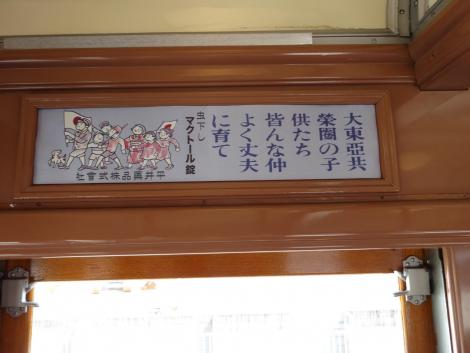 大東亞共
榮圈の子
供たち
皆んな仲
よく丈夫
に育て
虫下し
マクトール錠
社會式株品藥井平